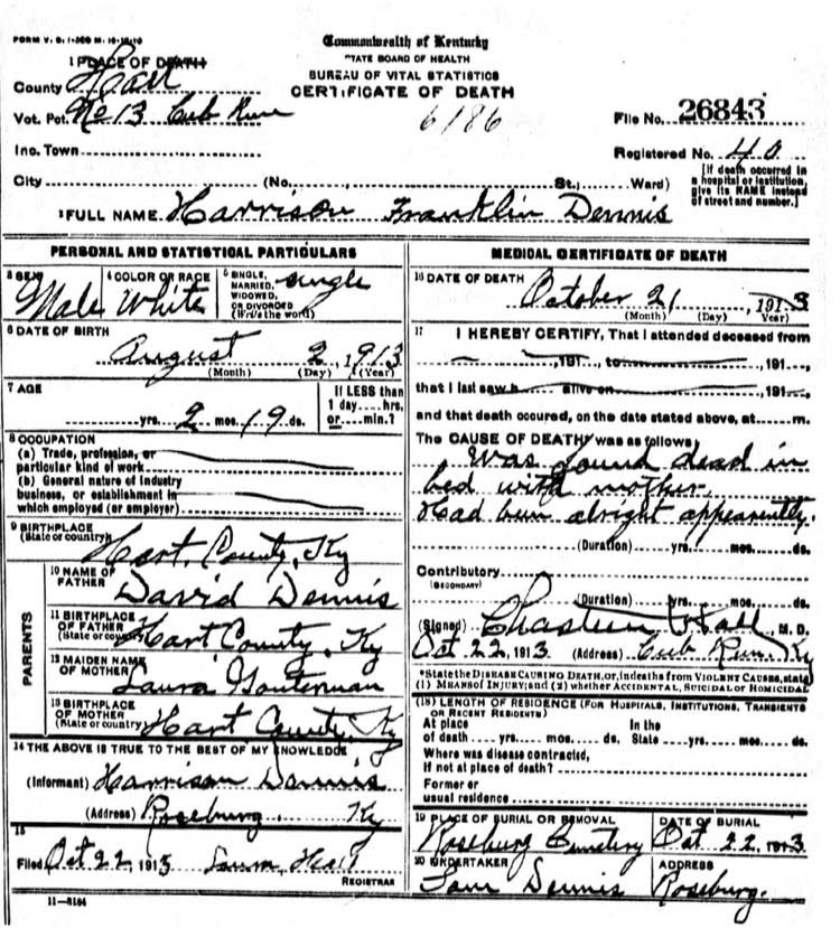 FORM V. S. 1-300 M. 10-12-10
Commonwealth of Kentucky
STATE BOARD OF HEALTH
BUREAU OF VITAL STATISTICS
CERTIFICATE OF DEATH
1 PLACE OF DEATH
County Hart
Vot. Pct. No 13 Cub Run
6186
File No. 26843
Inc. Town
Registered No. 40
City (No. St., Ward)
[If death occurred in a hospital or institution, give its NAME instead of street and number.]
2 FULL NAME Harrison Franklin Dennis
PERSONAL AND STATISTICAL PARTICULARS
3 SEX Male
4 COLOR OR RACE White
5 SINGLE, MARRIED, WIDOWED, OR DIVORCED (Write the word) single
6 DATE OF BIRTH
August 2, 1913
(Month) (Day) (Year)
7 AGE
yrs. 2 mos. 19 ds.
If LESS than 1 day....hrs. or....min.?
8 OCCUPATION
(a) Trade, profession, or
particular kind of work
(b) General nature of Industry
business, or establishment in
which employed (or employer)
9 BIRTHPLACE
(State or country) Hart County, Ky
PARENTS
10 NAME OF FATHER David Dennis
11 BIRTHPLACE OF FATHER (State or country) Hart County, Ky
12 MAIDEN NAME OF MOTHER Laura
13 BIRTHPLACE OF MOTHER (State or country) Hart County, Ky
14 THE ABOVE IS TRUE TO THE BEST OF MY KNOWLEDGE
(Informant) Harrison Dennis
(Address) Roseburg Ky
15
Filed Oct 22, 1913
REGISTRAR
11-3184
MEDICAL CERTIFICATE OF DEATH
16 DATE OF DEATH
October 21, 1913
(Month) (Day) (Year)
17 I HEREBY CERTIFY, That I attended deceased from
,191 , to ,191 ,
that I last saw h alive on ,191 ,
and that death occured, on the date stated above, at m.
The CAUSE OF DEATH was as follows
Was found dead in
bed with mother.
Had been alright appearently.
(Duration) yrs. mos. ds.
Contributory
(SECONDARY)
(Duration) yrs. mos. ds.
(Signed) Chasteen Hall M. D.
Oct 22, 1913 (Address) Cub Run Ky
*State the DISEASE CAUSING DEATH, or, in deaths from VIOLENT CAUSES, state
(1) MEANS of INJURY; and (2) whether ACCIDENTAL, SUICIDAL or HOMICIDAL
(18) LENGTH OF RESIDENCE (FOR HOSPITALS, INSTITUTIONS, TRANSIENTS
OR RECENT RESIDENTS)
At place In the
of death yrs. mos. ds. State yrs. mos. ds.
Where was disease contracted,
If not at place of death?
Former or
usual residence
19 PLACE OF BURIAL OR REMOVAL
Roseburg Cemetery
DATE OF BURIAL
Oct 22, 1913
20 UNDERTAKER
Dennis
ADDRESS
Roseburg.